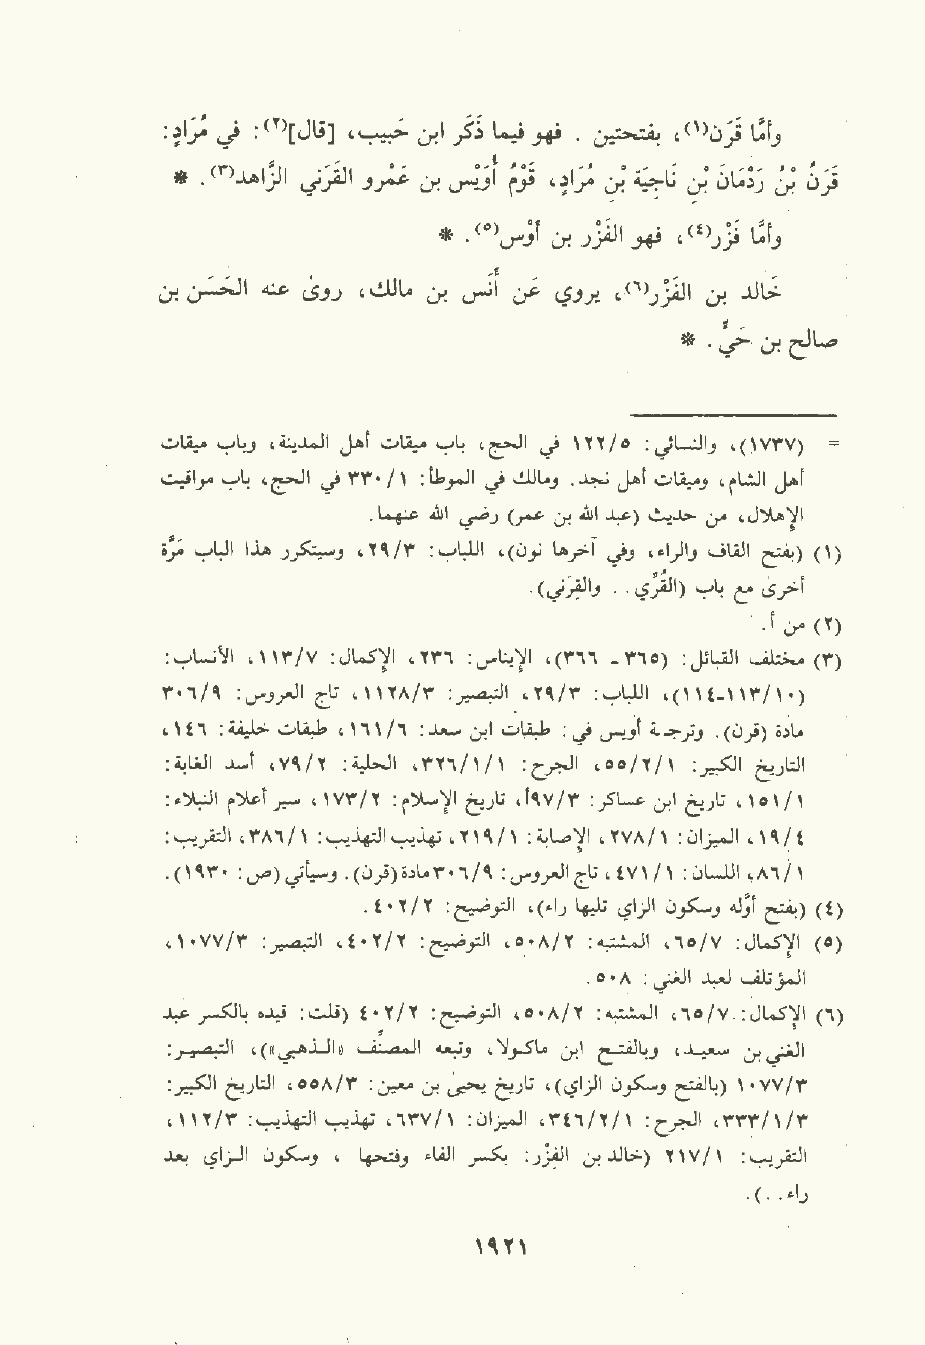 وأمّا قَرَن(١)، بفتحتين. فهو فيما ذَكَرَ ابن حَبيب، [قال](٢): في مُرَادٍ:
قَرَنُ بْنُ رَدْمَانَ بْنِ نَاجِيَةَ بْنِ مُرَادٍ، قَوْمُ أُوَيْسِ بن عَمْرٍو القَرَنيِّ الزَّاهد(٣). *
وأمّا فَزْر(٤)، فهو الفَزْر بن أَوْس(٥). *
خَالد بن الفَزْر(٦)، يروي عَن أَنَس بن مالك، روَى عنه الحَسَن بن
صالح بن حَيٍّ. *
= (١٧٣٧)، والنسائي: ١٢٢/٥ في الحج، باب ميقات أهل المدينة، وباب ميقات
أهل الشام، وميقات أهل نجد. ومالك في الموطأ: ٣٣٠/١ في الحج، باب مواقيت
الإهلال، من حديث (عبد الله بن عمر) رضي الله عنهما.
(١) (بفتح القاف والراء، وفي آخرها نون)، اللباب: ٢٩/٣، وسيتكرر هذا الباب مَرّة
أخرىَ مع باب (القُرِّي.. والقَرَني).
(٢) من أ.
(٣) مختلف القبائل: (٣٦٥ - ٣٦٦)، الإيناس: ٢٣٦، الإكمال: ١١٣/٧، الأنساب:
(١١٣/١٠-١١٤)، اللباب: ٢٩/٣، التبصير: ١١٢٨/٣، تاج العروس: ٣٠٦/٩
مادة (قرن). وترجمة أويس في: طبقات ابن سعد: ١٦١/٦، طبقات خليفة: ١٤٦،
التاريخ الكبير: ٥٥/٢/١، الجرح: ٣٢٦/١/١، الحلية: ٧٩/٢، أسد الغابة:
١٥١/١، تاريخ ابن عساكر: ٩٧/٣أ، تاريخ الإسلام: ١٧٣/٢، سير أعلام النبلاء:
١٩/٤، الميزان: ٢٧٨/١، الإصابة: ٢١٩/١، تهذيب التهذيب: ٣٨٦/١، التقريب:
٨٦/١، اللسان: ٤٧١/١، تاج العروس: ٣٠٦/٩ مادة (قرن). وسيأتي (ص: ١٩٣٠).
(٤) (بفتح أوّله وسكون الزاي تليها راء)، التوضيح: ٤٠٢/٢.
(٥) الإكمال: ٦٥/٧، المشتبه: ٥٠٨/٢، التوضيح: ٤٠٢/٢، التبصير: ١٠٧٧/٣،
المؤتلف لعبد الغني: ٥٠٨.
(٦) الإكمال: ٦٥/٧، المشتبه: ٥٠٨/٢، التوضيح: ٤٠٢/٢ (قلت: قيده بالكسر عبد
الغني بن سعيد، وبالفتح ابن ماكولا، وتبعه المصنّف «الذهبي»)، التبصير:
١٠٧٧/٣ (بالفتح وسكون الزاي)، تاريخ يحيىَ بن معين: ٥٥٨/٣، التاريخ الكبير:
٣٣٣/١/٣، الجرح: ٣٤٦/٢/١، الميزان: ٦٣٧/١، تهذيب التهذيب: ١١٢/٣،
التقريب: ٢١٧/١ (خالد بن الفَزْر: بكسر الفاء وفتحها، وسكون الزاي بعد
راء..).
١٩٢١